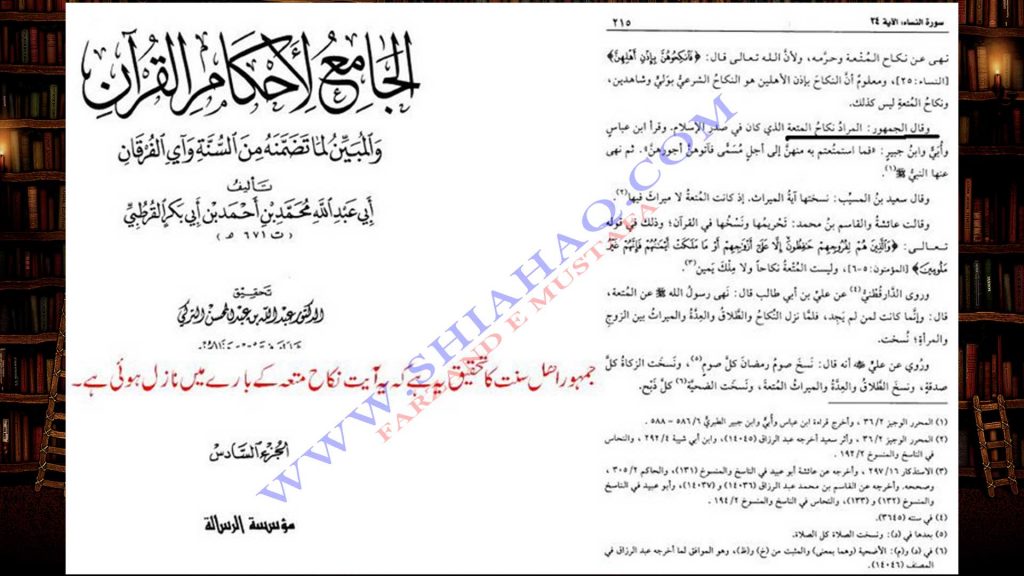 الجامع لأحكام القرآن
والمبين لما تضمنه من السنة وآي الفرقان
تأليف
أبي عبد الله محمد بن أحمد بن أبي بكر القرطبي
(ت ٦٧١ هـ)
تحقيق
الدكتور عبد الله بن عبد المحسن التركي
جمہور اہل سنت کا تحقیق یہ ہے کہ یہ آیت نکاح متعہ کے بارے میں نازل ہوئی ہے۔
الجزء السادس
مؤسسة الرسالة
سورة النساء: الآية ٢٤
٢١٥
نهى عن نكاح المُتْعة وحرَّمه، ولأنَّ الله تعالى قال: ﴿فَانكِحُوهُنَّ بِإِذْنِ أَهْلِهِنَّ﴾
[النساء: ٢٥]، ومعلومٌ أنَّ النكاحَ بإذن الأهلين هو النكاحُ الشرعيُّ بوَليٍّ وشاهدين،
ونكاحُ المُتعةِ ليس كذلك.
وقال الجمهور: المرادُ نكاحُ المتعة الذي كان في صدر الإسلام. وقرأ ابن عباسٍ
وأُبَيٌّ وابنُ جبيرٍ: «فما استمتعتم به منهنَّ إلى أجلٍ مُسَمًّى فآتوهنَّ أجورهنَّ». ثم نهى
عنها النبيُّ ﷺ(١).
وقال سعيد بنُ المسيِّب: نسختها آيةُ الميراث، إذ كانت المُتعةُ لا ميراثَ فيها(٢).
وقالت عائشةُ والقاسم بنُ محمد: تَحْريمُها ونَسْخُها في القرآن؛ وذلك في قوله
تعالى: ﴿وَالَّذِينَ هُمْ لِفُرُوجِهِمْ حَافِظُونَ إِلَّا عَلَىٰ أَزْوَاجِهِمْ أَوْ مَا مَلَكَتْ أَيْمَانُهُمْ فَإِنَّهُمْ غَيْرُ
مَلُومِينَ﴾ [المؤمنون: ٥-٦]، وليست المُتعةُ نكاحاً ولا مِلْكَ يَمين(٣).
وروى الدَّارَقُطْنيُّ(٤) عن عليِّ بن أبي طالب قال: نَهى رسولُ الله ﷺ عن المتعة،
قال: وإنَّما كانت لمن لم يَجِد، فلمَّا نزل النِّكاحُ والطَّلاقُ والعِدَّةُ والميراثُ بين الزوجِ
والمرأةِ؛ نُسخت.
ورُوي عن عليٍّ ؓ أنه قال: نَسَخَ صومُ رمضانَ كلَّ صومٍ(٥)، ونَسَخت الزكاةُ كلَّ
صدقةٍ، ونسخَ الطَّلاقُ والعِدَّةُ والميراثُ المُتعةَ، ونَسَخت الضحيَّةُ(٦) كلَّ ذَبْح.
(١) المحرر الوجيز ٣٦/٢ ، وأخرج قراءة ابن عباس وأُبيٍّ وابن جبير الطبريُّ ٥٨٦/٦ - ٥٨٨ .
(٢) المحرر الوجيز ٣٦/٢ ، وأثر سعيد أخرجه عبد الرزاق (١٤٠٤٥)، وابن أبي شيبة ٢٩٢/٤ ، والنحاس
في الناسخ والمنسوخ ١٩٢/٢ .
(٣) الاستذكار ٢٩٧/١٦ ، وأخرجه عن عائشة أبو عبيد في الناسخ والمنسوخ (١٣١)، والحاكم ٣٠٥/٢ ،
وصححه. وأخرجه عن القاسم بن محمد عبد الرزاق (١٤٠٣٦) و(١٤٠٣٧)، وأبو عبيد في الناسخ
والمنسوخ (١٣٢) و(١٣٣)، والنحاس في الناسخ والمنسوخ ١٩٤/٢ .
(٤) في سننه (٣٦٤٥).
(٥) بعدها في (د): ونسخت الصلاة كل الصلاة.
(٦) في (د) و(م): الأضحية (وهما بمعنى) والمثبت من (خ) و(ظ)، وهو الموافق لما أخرجه عبد الرزاق في
المصنف (١٤٠٤٦).
WWW.SHIAHAQ.COM
FARZAND E MUSTAFA